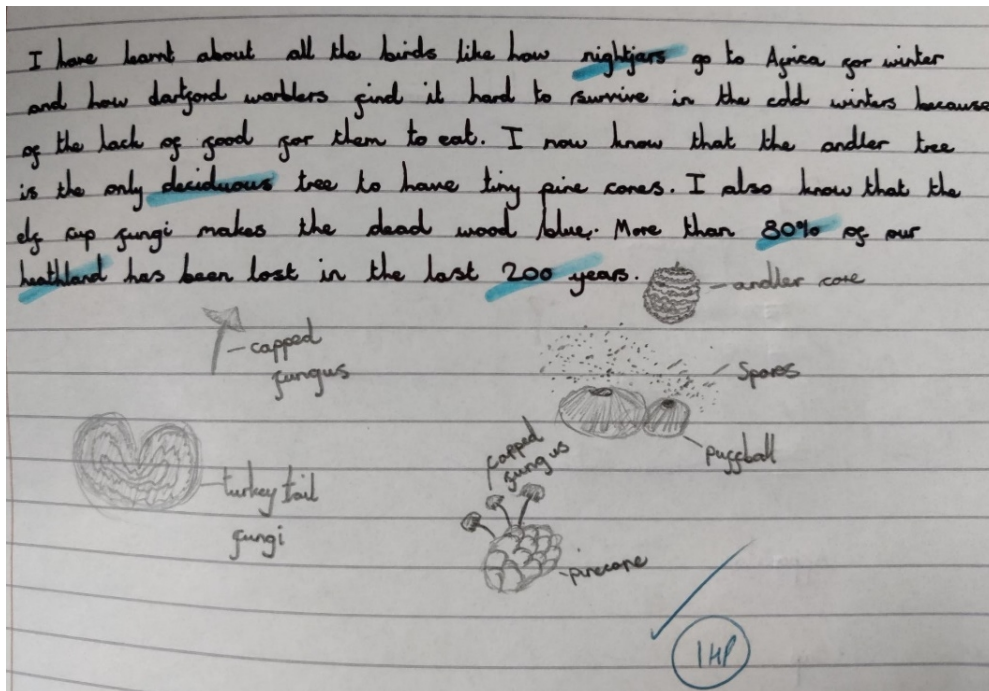 I have learnt about all the birds like how nightjars go to Africa for winter
and how dartford warblers find it hard to survive in the cold winters because
of the lack of food for them to eat. I now know that the andler tree
is the only deciduous tree to have tiny pine cones. I also know that the
elf cup fungi makes the dead wood blue. More than 80% of our
heathland has been lost in the last 200 years.
andler cone
capped
fungus
Spores
puffball
capped
fungus
turkey tail
fungi
pinecone
1HP